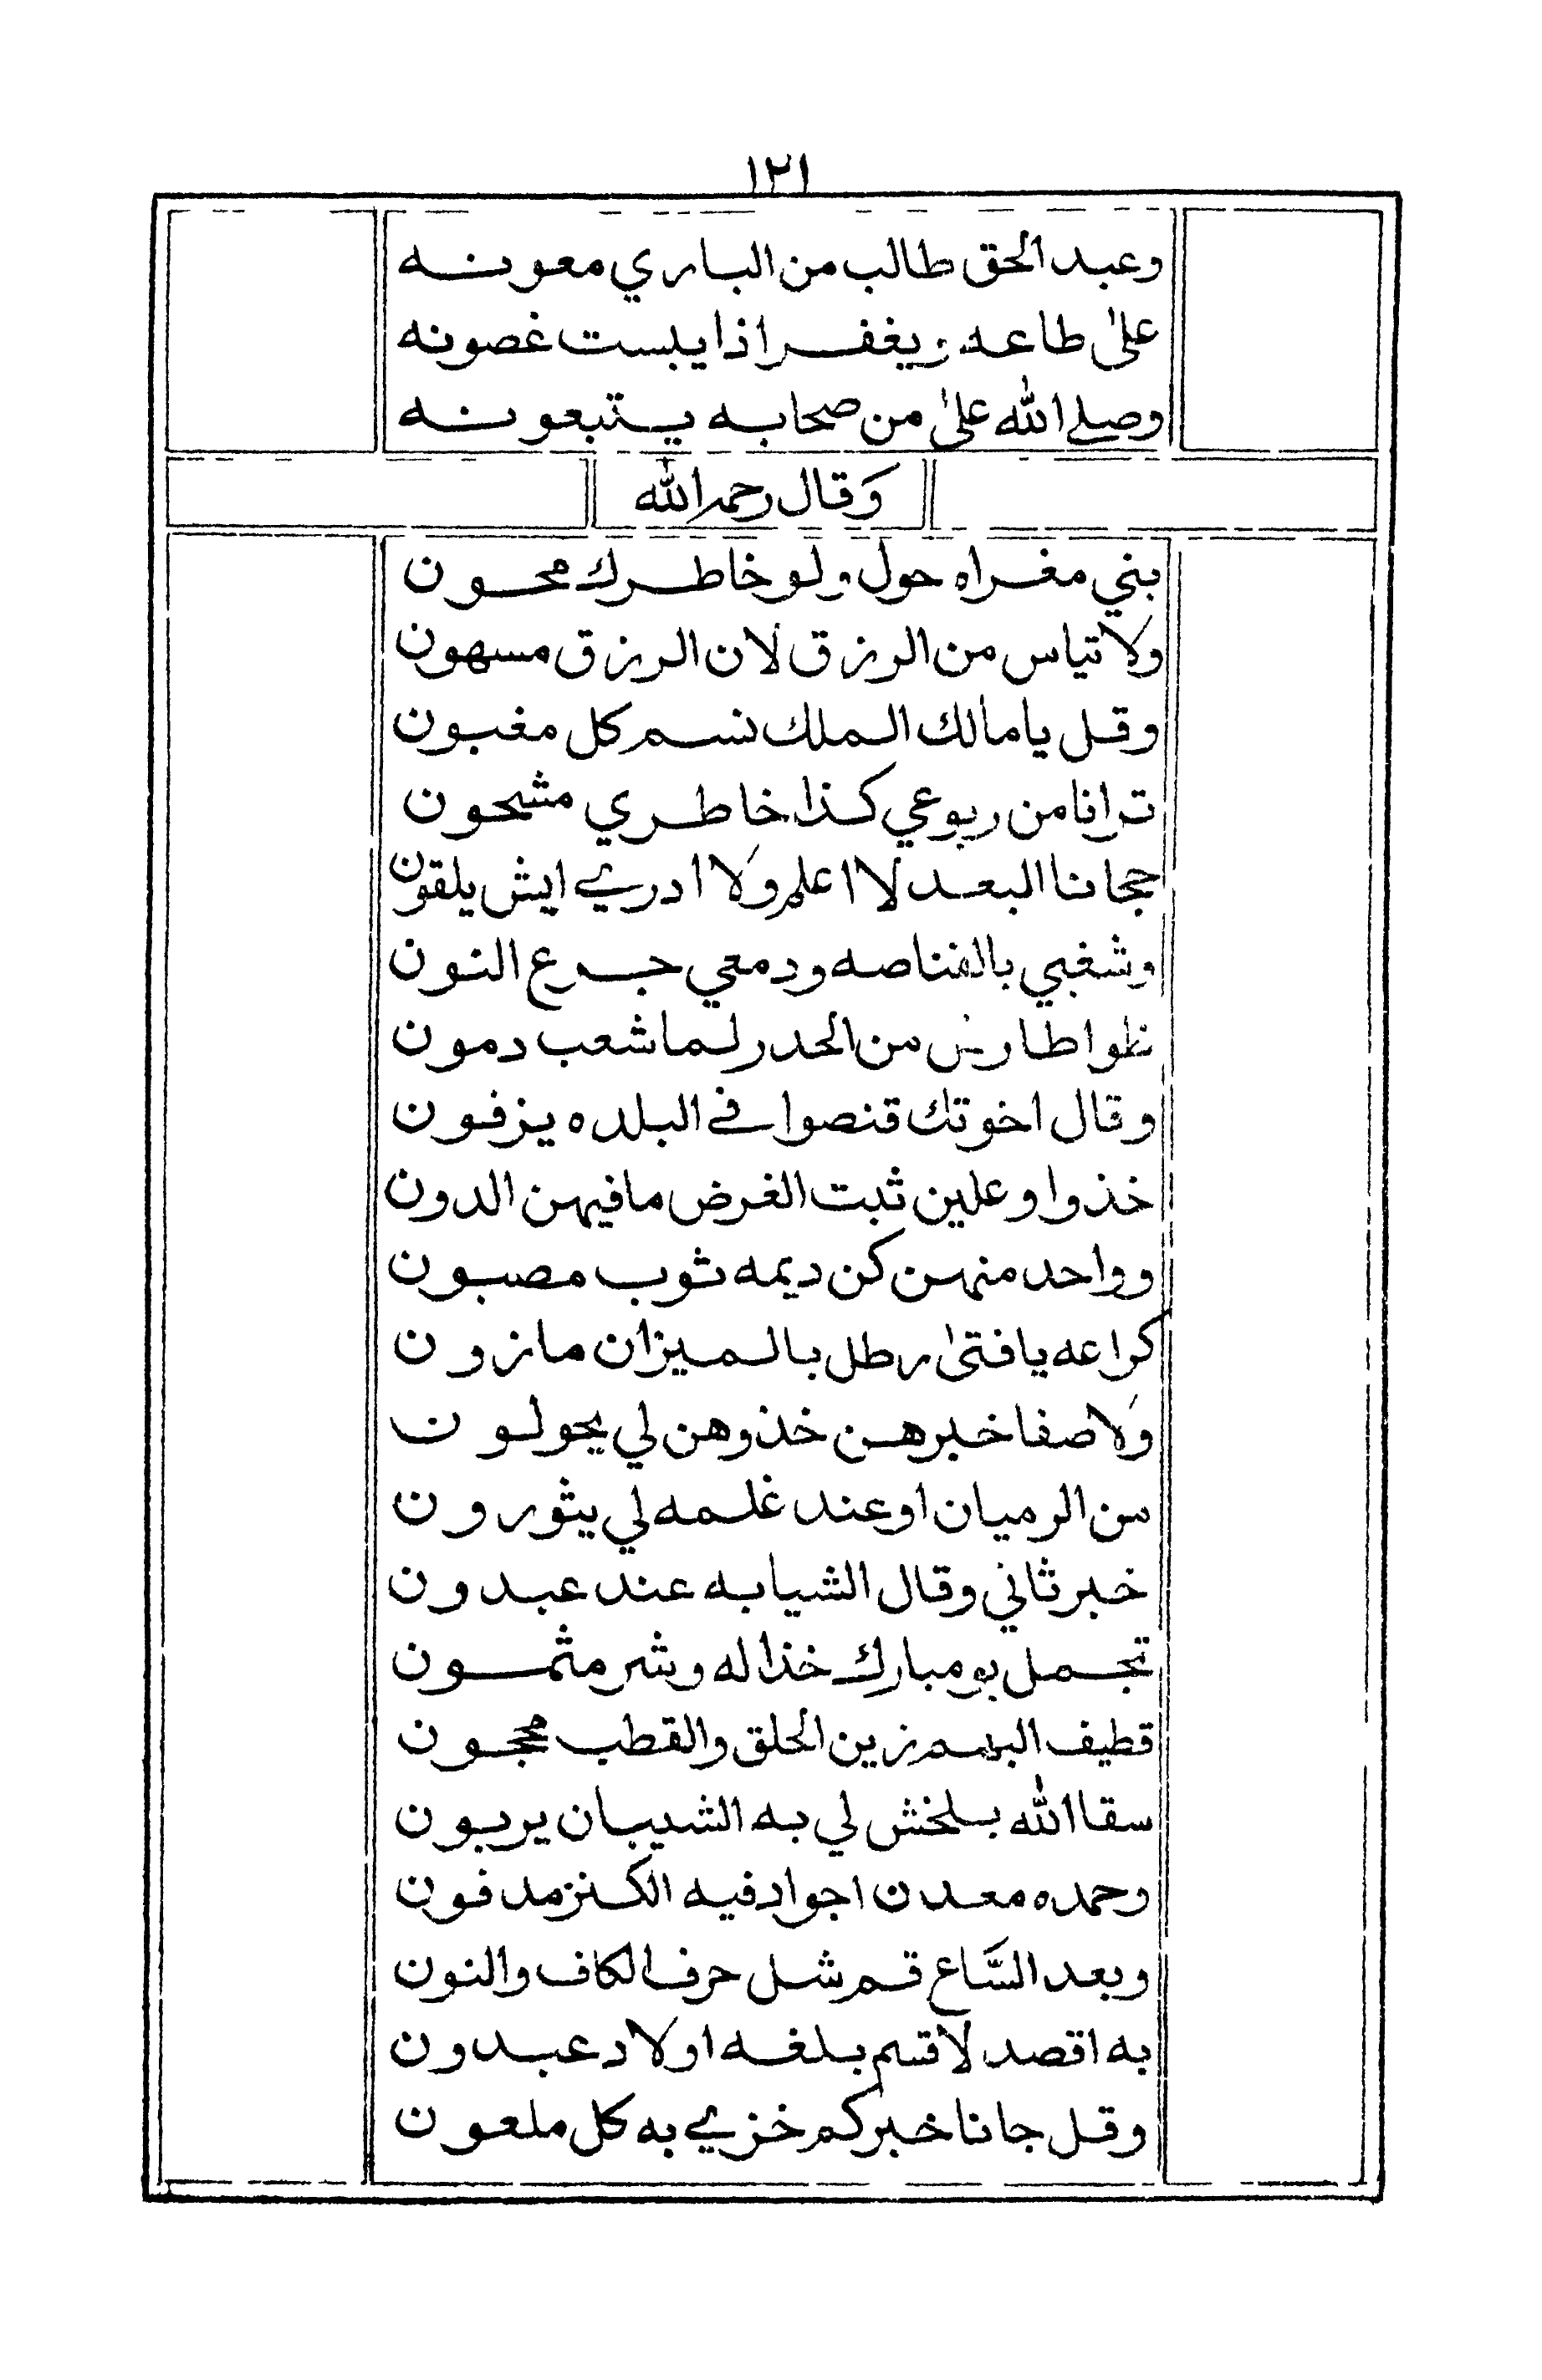 ١٢١
وعبد الحق طالب من الباري معونه
على طاعه ويغفر اذا يبست غصونه
وصلى الله على من صحابه يتبعونه
وَقال رحمه الله
بني مغراه حول ولو خاطرك محون
ولا تياس من الرزق لان الرزق مسهون
وقل يا مالك الملك نسم كل مغبون
ترانا من ربوعي كذا خاطري مشحون
حجانا البعد لا اعلم ولا ادري ايش يلقون
وشغبي بالقناصه ودمعي جرع النون
نظوا طارش من الحدر لما شعب دمون
وقال اخوتك قنصوا في البلده يزفون
خذوا وعلين ثبت الغرض ما فيهن الدون
وواحد منهن كن ديمه ثوب مصبون
كراعه يا فتى رطل بالميزان مازون
ولا صفا خبرهن خذوهن لي يحولون
من الرميان او عند غلمه لي يثورون
خبر ثاني وقال الشيابه عند عبدون
تجمل بو مبارك خذا له وشر مثمون
قطيف البسم زين الحلق والقطب محجون
سقا الله بلخش لي به الشيبان يربون
وحمده معدن اجواد فيه الكنز مدفون
وبعد السَّاع قم شل حرف الكاف والنون
به اقصد لا قسم بلغه اولاد عبدون
وقل جانا خبركم خزي به كل ملعون